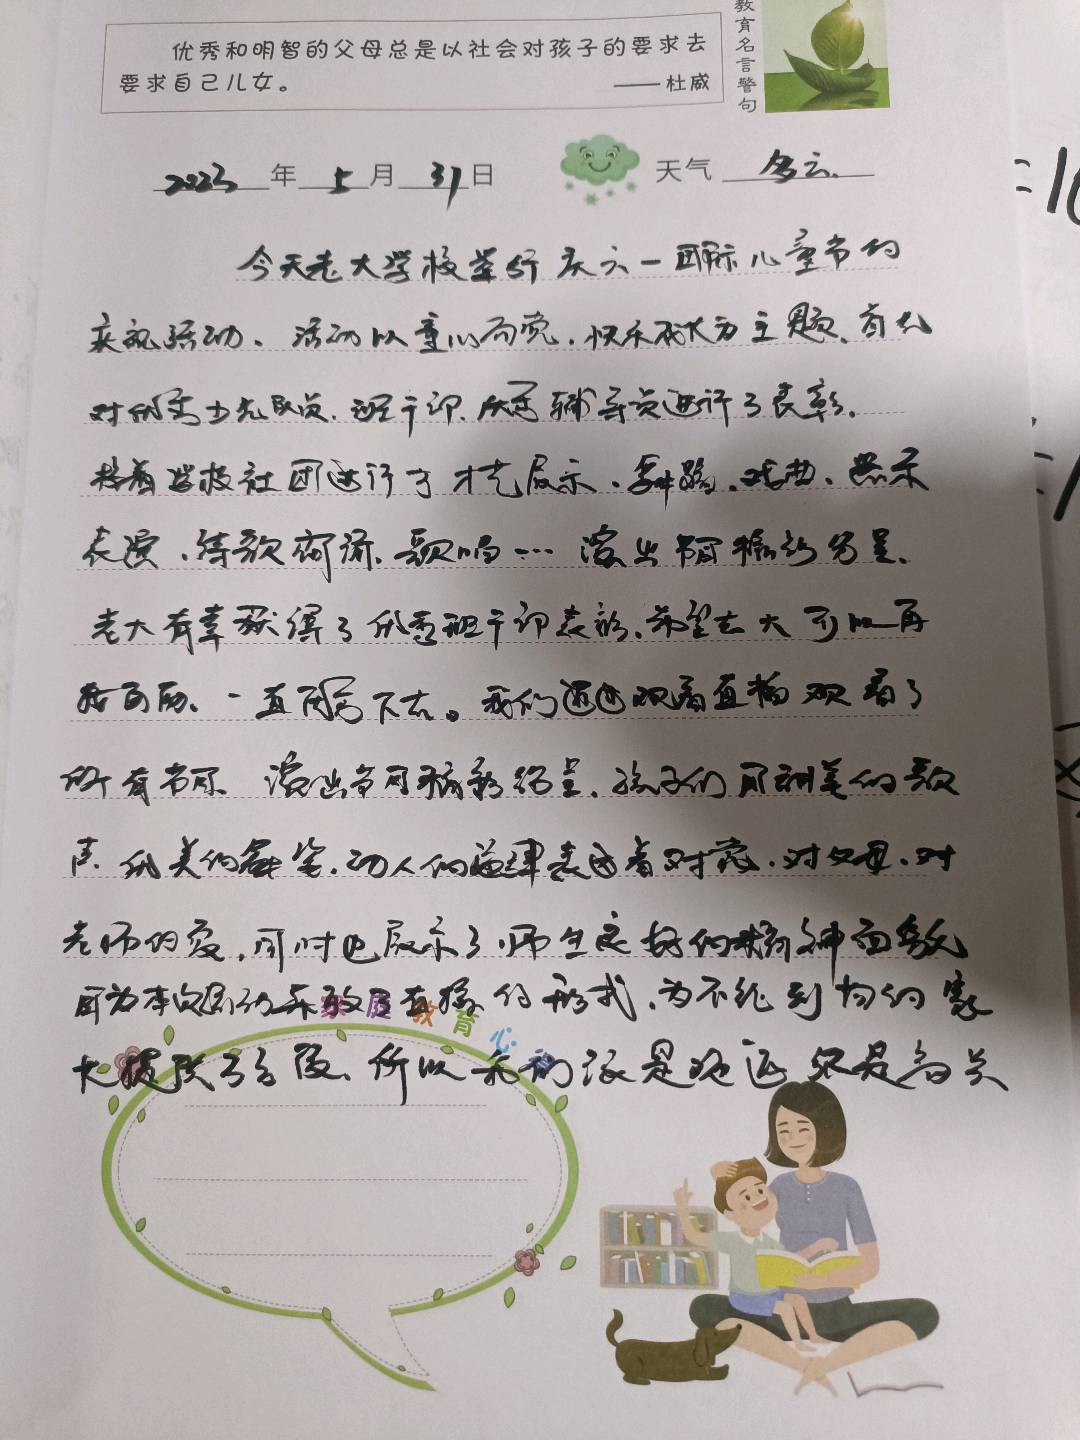 教育名言警句
优秀和明智的父母总是以社会对孩子的要求去
要求自己儿女。
——杜威
2023年5月31日 天气 多云
今天老大学校举行庆六一国际儿童节的
庆祝活动。活动以童心向党,快乐成长为主题,首先
对优秀少先队员、班干部、优秀辅导员进行了表彰。
接着学校社团进行了才艺展示,舞蹈、戏曲、器乐
表演、诗歌朗诵、歌唱…… 演出节目精彩纷呈。
老大有幸获得了优秀班干部表彰,希望老大可以再
接再厉、一直优秀下去。我们通过观看直播观看了
所有节目 演出节目精彩纷呈,孩子们用甜美的歌
声、优美的舞姿、动人的旋律表达着对党、对父母、对
老师的爱,同时也展示了师生良好的精神面貌
因为本次活动采取直播的形式,为不能到场的家
长提供了方便、所以我们该是
家庭教育心